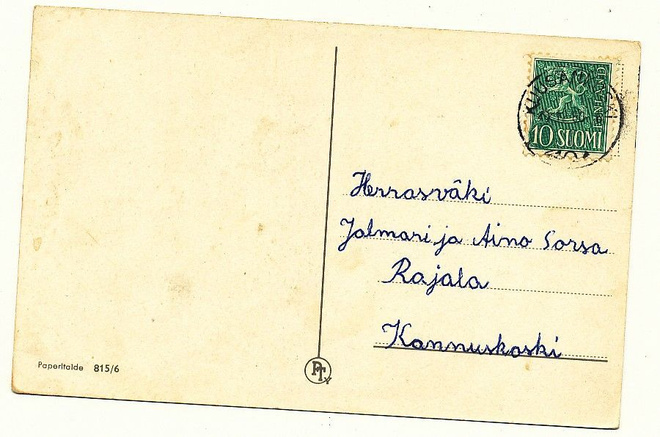 10 SUOMI
Herrasväki
Jalmari ja Aino Sorsa
Rajala
Kannuskoski
Paperitaide 815/6
PT